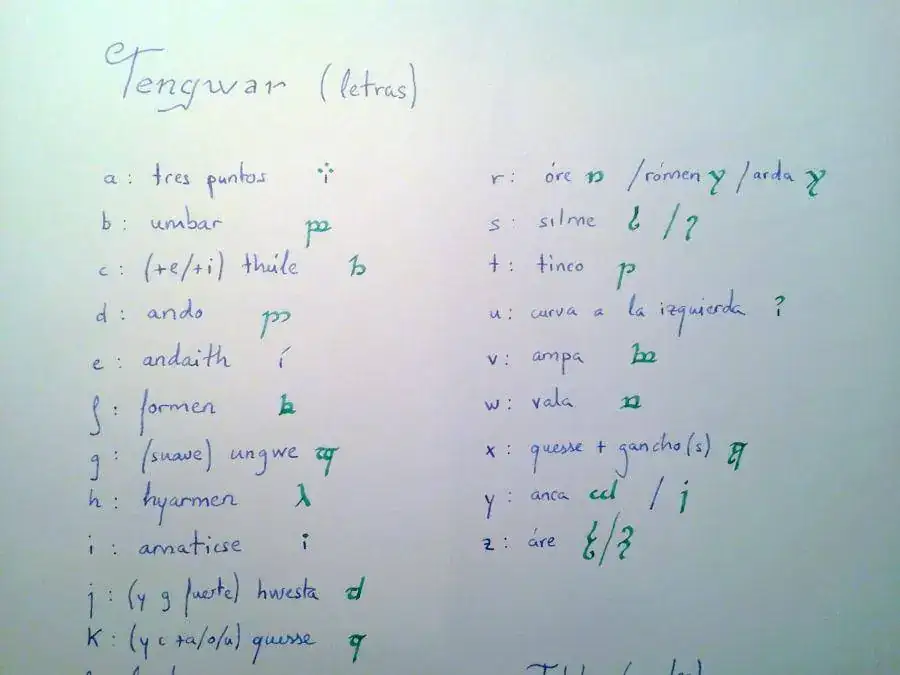 Tengwar (letras)
a: tres puntos
b: umbar
c: (+e/+i) thúle
d: ando
e: andaith
f: formen
g: (suave) ungwe
h: hyarmen
i: amaticse
j: (y g fuerte) hwesta
K: (y c +a/o/u) quesse
r: óre /rómen /arda
s: silme /
t: tinco
u: curva a la izquierda
v: ampa
w: vala
x: quesse + gancho(s)
y: anca /
z: áre /